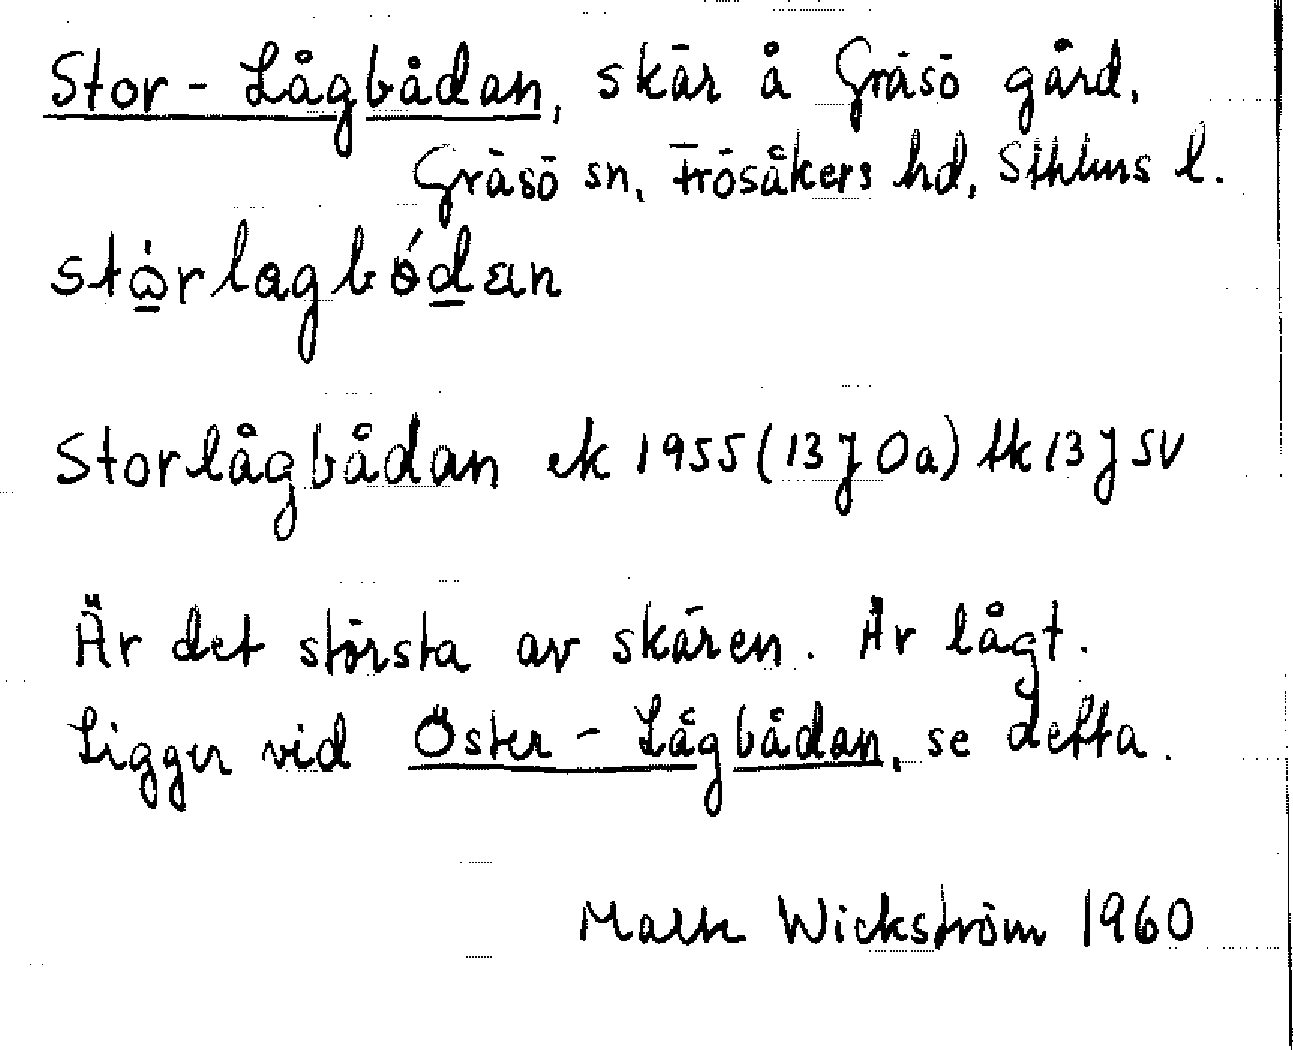 Stor-Lågbådan, skär å Gräsö gård,
Gräsö sn, Frösåkers hd, Sthlms l.
Storlågbådan ek 1955 (13 J 0a) tk 13 J SV
Är det största av skären. Är lågt.
Ligger vid Öster-Lågbådan, se detta.
Wickström 1960